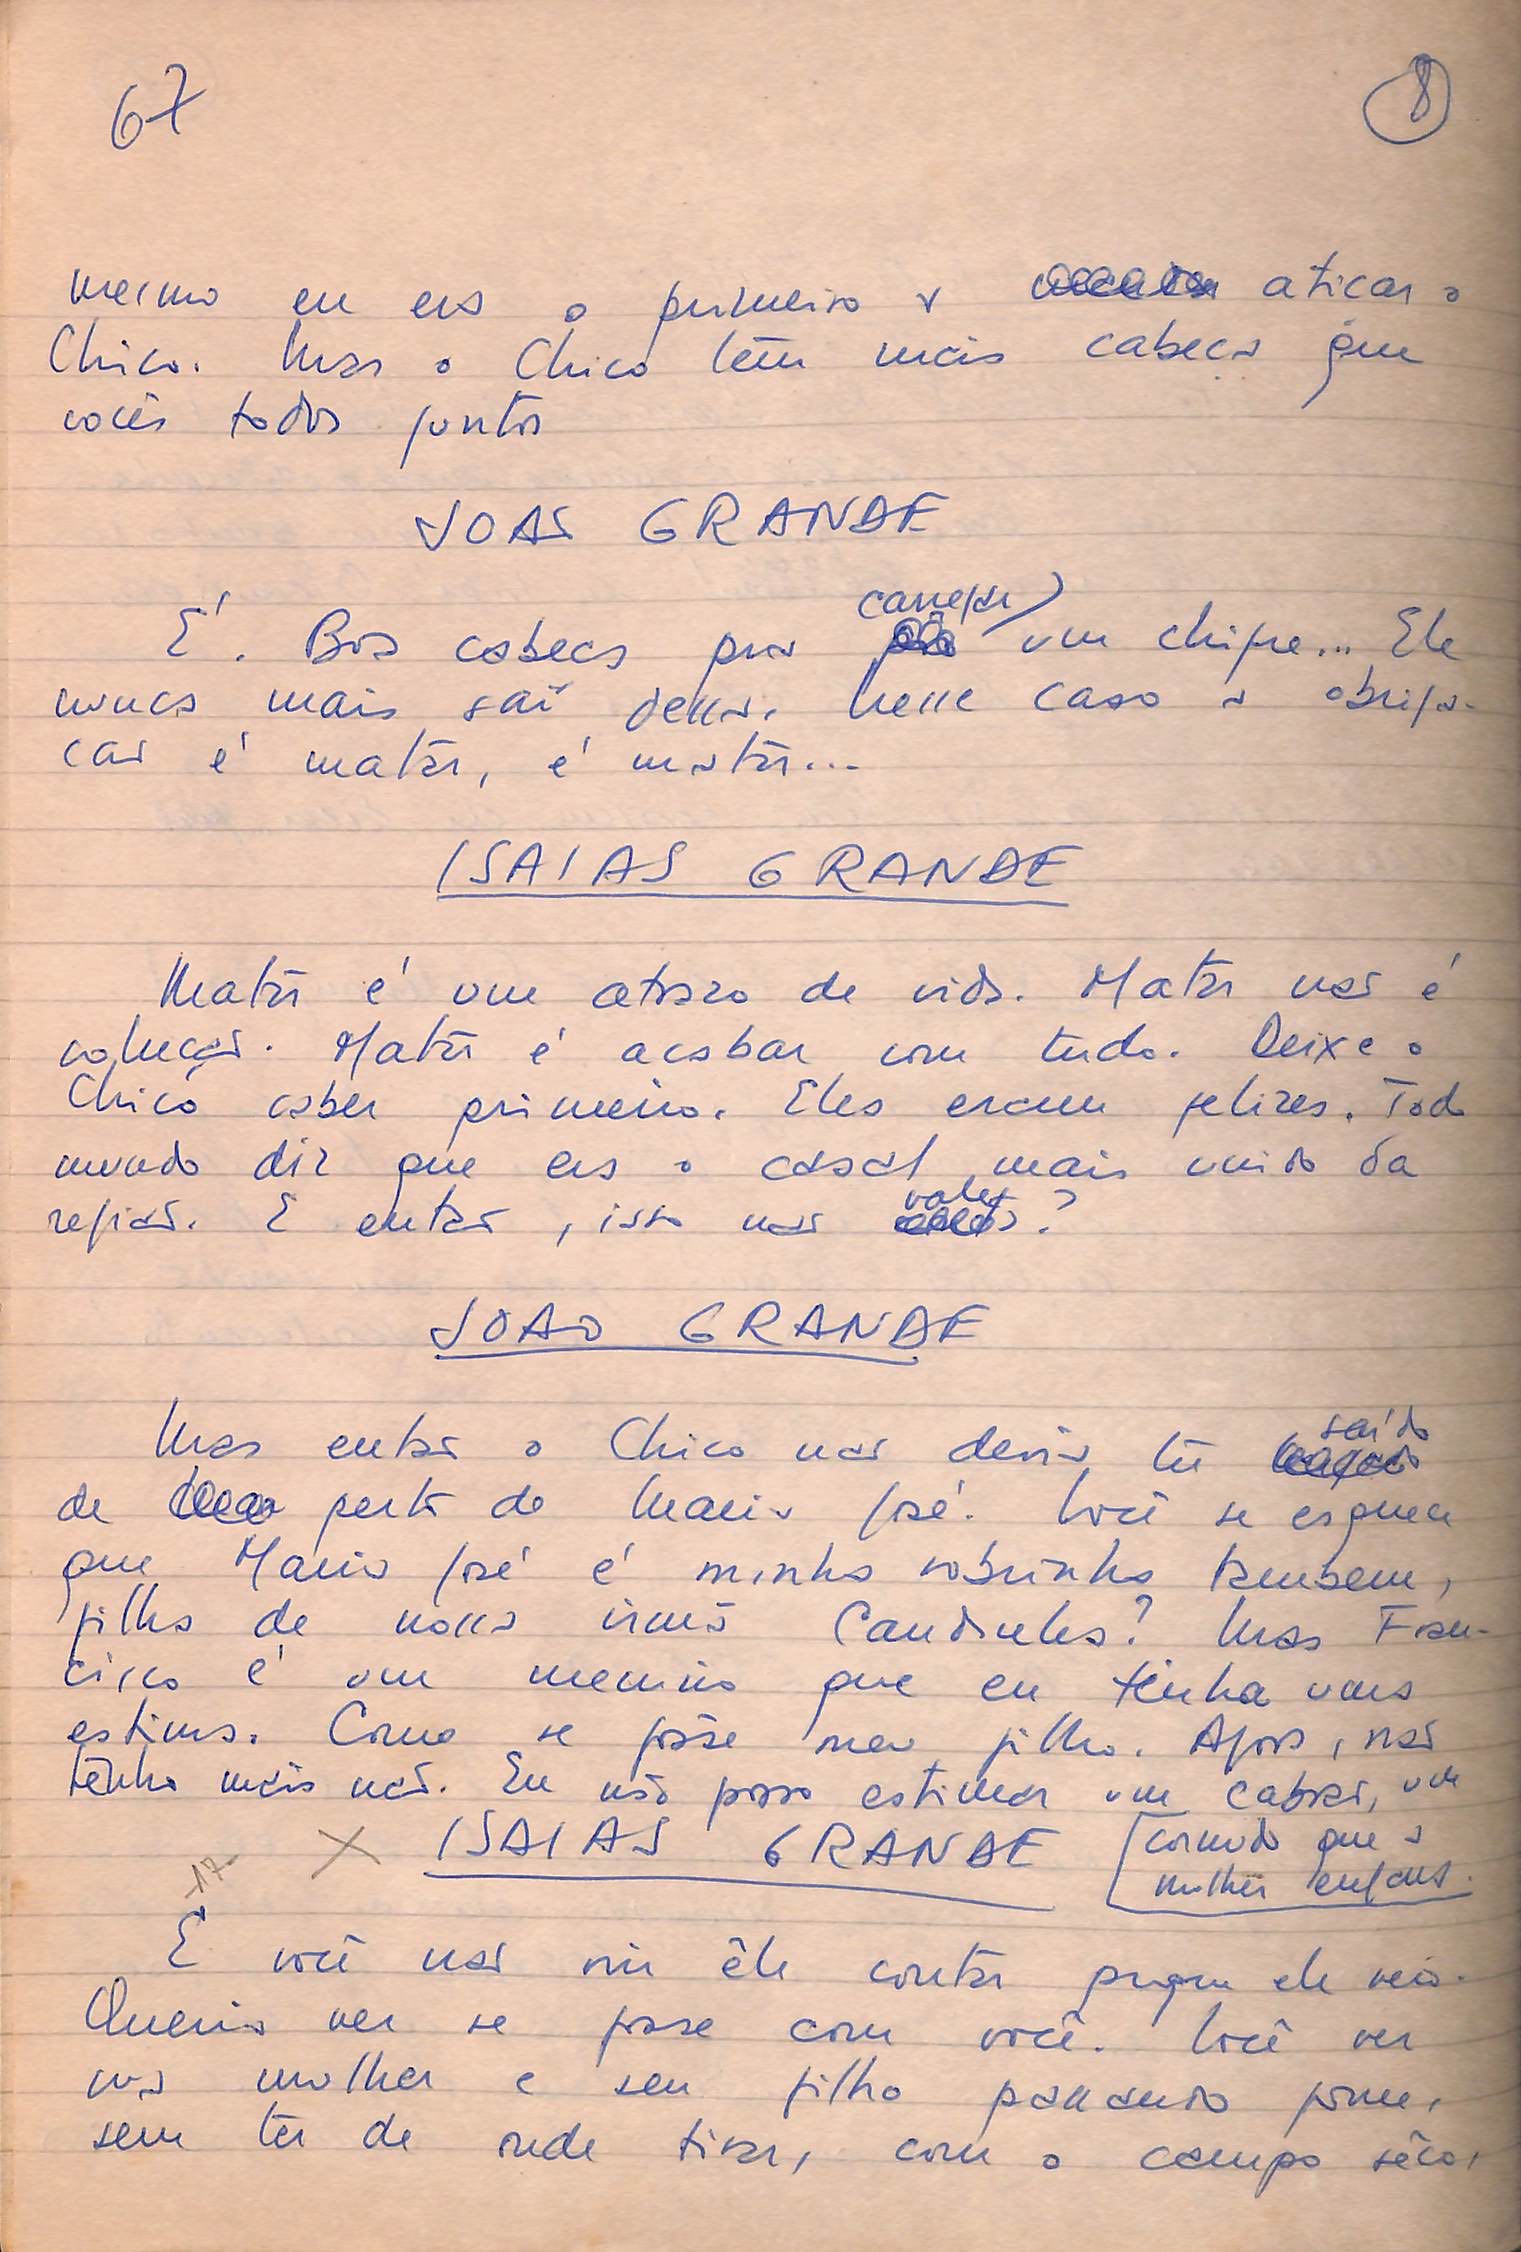 67
8
mesmo eu era o primeiro a atiçar o
Chico. Mas o Chico têm mais cabeça que
vocês todos juntos
JOÃO GRANDE
É. Boa cabeça pra carregar um chifre... Ele
nunca mais sai dessa. Nesse caso a obriga-
ção é matar, é matar...
ISAIAS GRANDE
Matar é um atrazo de vida. Matar não é
solução. Matar é acabar com tudo. Deixe o
Chico saber primeiro. Eles eram felizes. Todo
mundo diz que era o casal mais unido da
região. E então, isso não vale?
JOAO GRANDE
Mas então o Chico não devia ter saído
de perto de Maria José. Você se esquece
que Maria José é minha sobrinha tambem,
filha de nossa irmã Candinha? Mas Fran-
cisco é um menino que eu tinha uma
estima. Como se fôsse meu filho. Agora, não
tênho mais não. Eu não posso estimar um cabrão, um
cornudo que a
mulher engana.
ISAIAS GRANDE
17
E você não viu êle contar porque ele veio.
Queria ver se fosse com você. Você ver
sua mulher e seu filho passando fome,
sem ter de onde tirar, com o campo sêco,